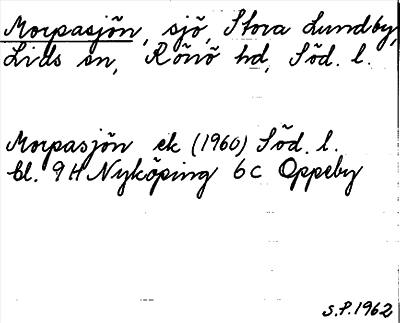 Morpasjön, sjö, Stora Lundby,
Lids sn, Rönö hd, Söd. l.
Morpasjön ek (1960) Söd. l.
bl. 9H Nyköping 6c Oppeby
S.P. 1962